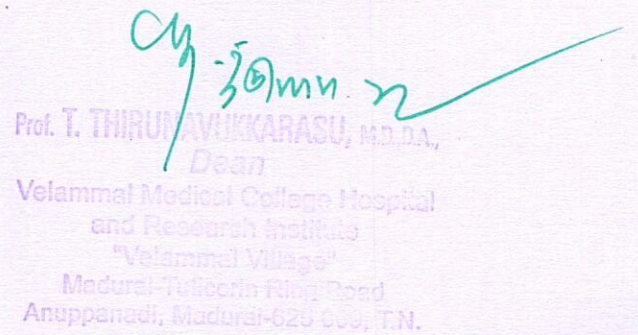 Prof. T. THIRUNAVUKKARASU, M.D.D.A.,
Dean
Velammal Medical College Hospital
and Research Institute
"Velammal Village"
Madurai-Tuticorin Ring Road
Anuppanadi, Madurai-625 009, T.N.